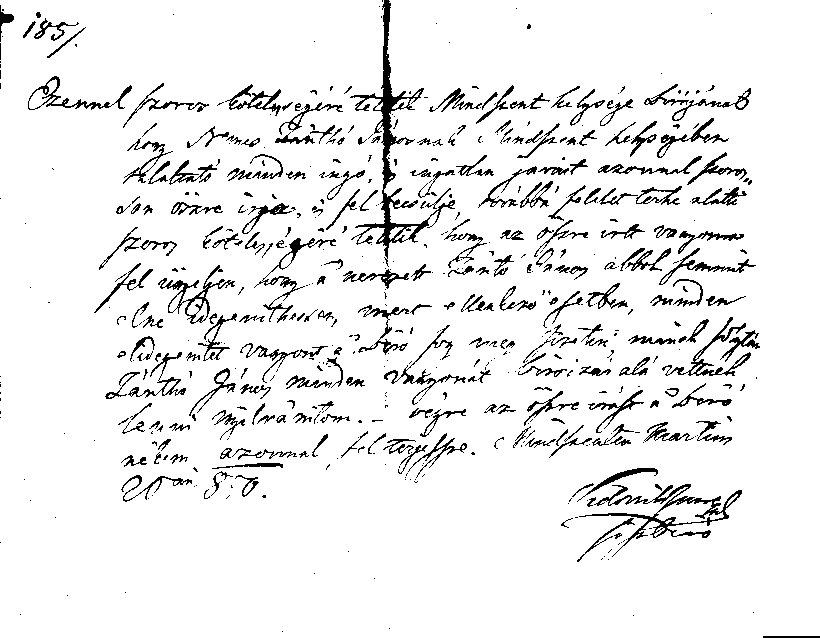 185/.
Ezennel szoros kötelységéré tétetik Mindszent helysége Birájának
hogy Nemes Zánthó Jánosnak Mindszent helységében
található minden ingó, és ingatlan javait azonnal szoros,,
san öszve irja, és fel becsülje, továbbá felelet terhe alatt
szoros kötelységéré tétetik, hogy az öszve irtt vagyonra
fel ügyeljen, hogy a nevezett Zántó János abbol semmit
elne idegenithessen, mert ellenkező esetben, minden
elidegenitet vagyont a Biró fog meg fizetni minek folytán
Zánthó János minden vagyonát birói zár alá vettnek
lenni nyilvánitom. – végre az öszve irást a biró
nékem azonnal fel terjessze. Mindszenten Martius
20án 850.
főszbiró